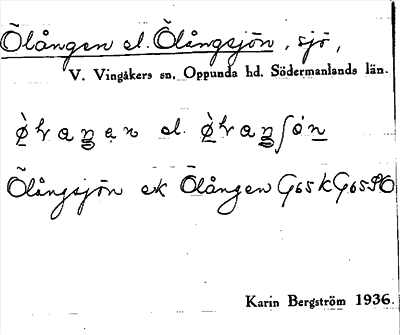 Ölången el. Ölångsjön, sjö,
V. Vingåkers sn, Oppunda hd. Södermanlands län.
el.
Ölångsjön ek Ölången G65 K G65 SO
Karin Bergström 1936.